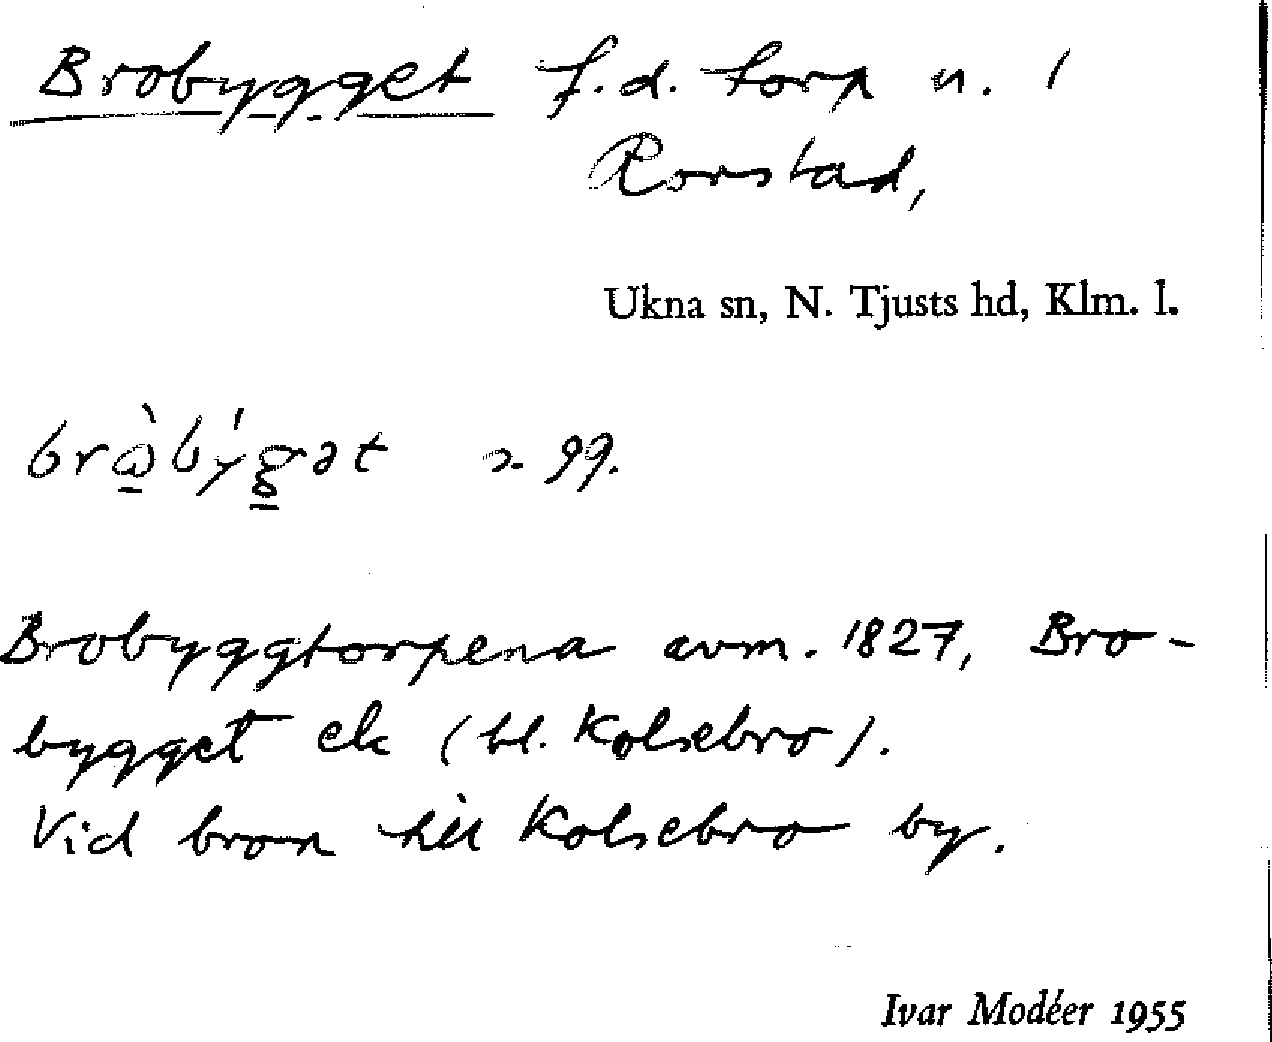 Brobygget f.d. torp u. /
Rorstad,
Ukna sn, N. Tjusts hd, Klm. l.
brὼ̱bý'g̱ət 99.
Brobyggtorpena avm. 1827, Bro-
bygget ek (bl. Kolsebro).
Vid bron till Kolsebro by.
Ivar Modéer 1955